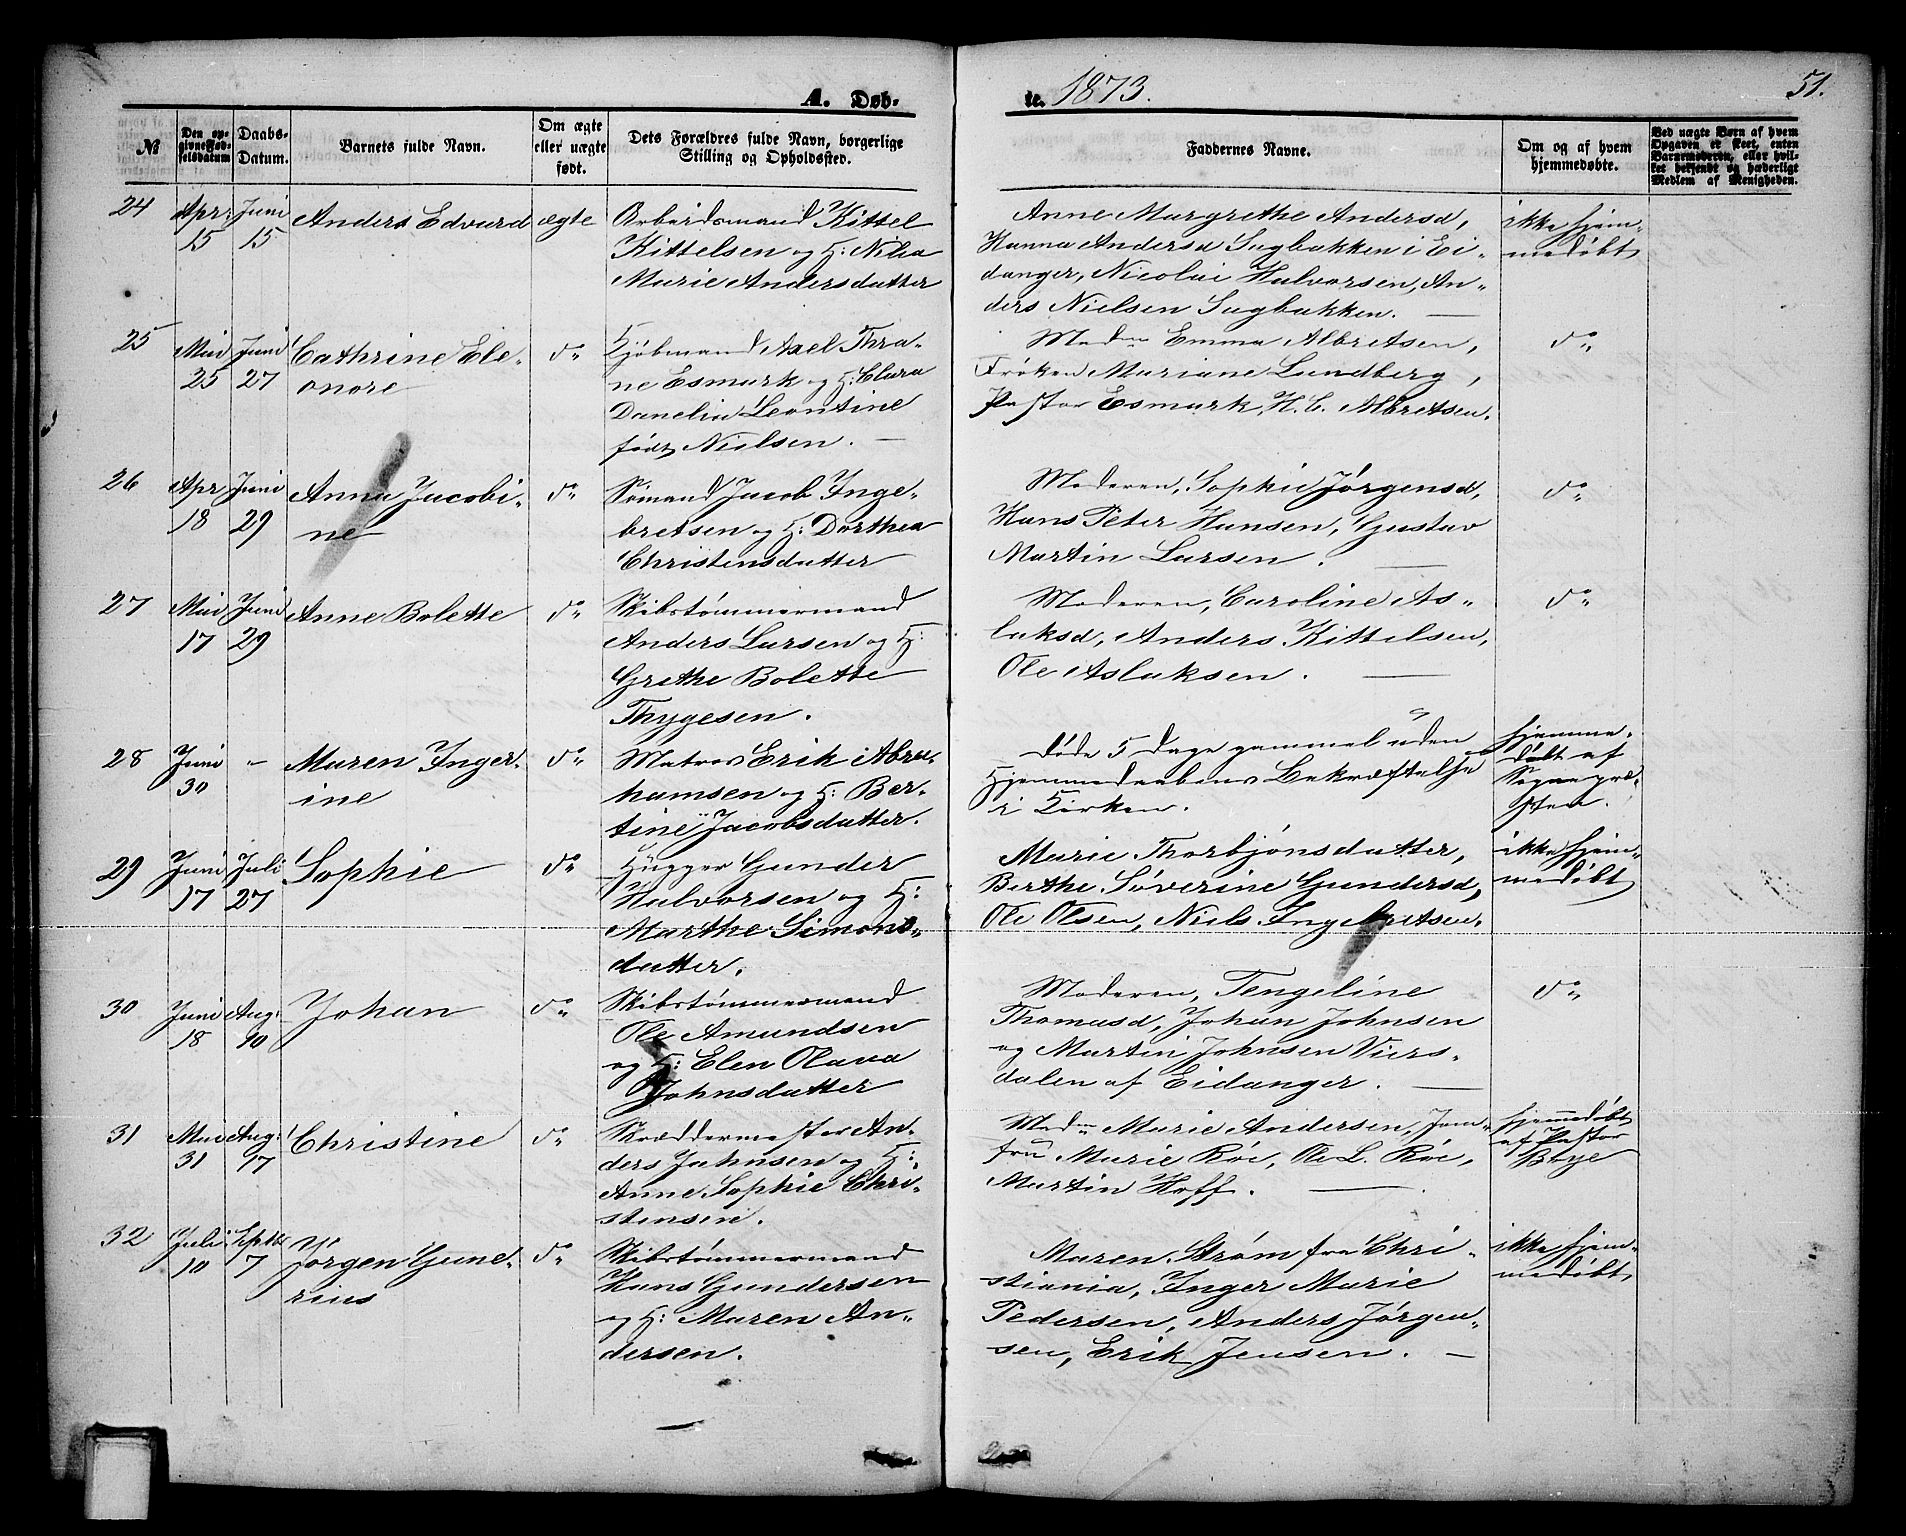 A. Døb-
te. 1873.
51.
№
Den op-
givne Fød-
selsdatum
Daabs-
Datum.
Barnets fulde Navn.
Om ægte
eller uægte
født.
Dets Forældres fulde Navn, borgerlige
Stilling og Opholdssted.
Faddernes Navne.
Om og af hvem
hjemmedøbte.
Ved uægte Børn af hvem
Opgaven er skeet, enten
Barnemoderen, eller hvil-
ket betroedt og hæderligt
Medlem af Menigheden.
24 Apr: 15 Juni 15 Anders Edvard ægte
Arbeidsmand Kittel
Kittelsen og H: Nilia
Marie Andersdatter
Anne Margrethe Andersd,
Hanna Andersd Sagbakken i Ei-
danger, Nicolai Halvorsen, An-
ders Nielsen Sagbakken. —
ikke hjem-
medøbt
25 Mai 25 Juni 27 Cathrine Ele-
onore
do
Kjøbmand Axel Thra-
ne Esmark og H: Clara
Danelia Leontine
født Nielsen. —
Madm Emma Albretsen,
Frøken Mariane Lundberg,
Pastor Esmark, H. C. Albretsen.
do
26 Apr 18 Juni 29 Anna Jacobi-
ne
do
Sømand Jacob Inge-
bretsen og H: Dorthea
Christensdatter
Moderen, Sophie Jørgensd,
Hans Peter Hansen, Gustav
Martin Larsen. —
do
27 Mai 17 Juni 29 Anne Bolette do
Skibstømmermand
Anders Larsen og H:
Grethe Bolette
Thygesen.
Moderen, Caroline As-
laksd, Anders Kittelsen,
Ole Aslaksen. —
do
28 Juni 30 — Maren Inger-
ine
do
Matros Erik Abra-
hamsen og H: Ber-
tine Jacobsdatter.
Døde 5 Dage gammel uden
Hjemmedaabens Bekræftelse
i Kirken.
hjemme-
døbt af
Sognepræ-
sten.
29 Juni 17 Juli 27 Sophie do
Hugger Gunder
Halvorsen og H:
Marthe Simons-
datter.
Marie Thorbjønsdatter,
Berthe Søverine Gundersd,
Ole Olsen, Niels Ingebretsen.
ikke hjem-
medøbt
30 Juni 18 Aug: 10 Johan do
Skibstømmermand
Ole Amundsen
og H: Elen Olava
Johnsdatter
Moderen, Tengeline
Thomasd, Johan Johnsen
og Martin Johnsen Viers-
dalen af Eidanger. —
do
31 Mai 31 Aug: 17 Christine do
Skræddermester An-
ders Jahnsen og H:
Anne Sophie Chri-
stensen.
Madm Marie Andersen, Jom-
fru Marie Røe, Ole L. Røe,
Martin Hoff. —
hjemmedøbt
af Pastor
Boye
32 Juli 10 Septbr 7 Jørgen Gune-
rius
do
Skibstømmermand
Hans Gundersen
og H: Maren An-
dersen.
Maren Strøm fra Chri-
stiania, Inger Marie
Pedersen, Anders Jørgen-
sen, Erik Jensen. —
ikke hjem-
medøbt